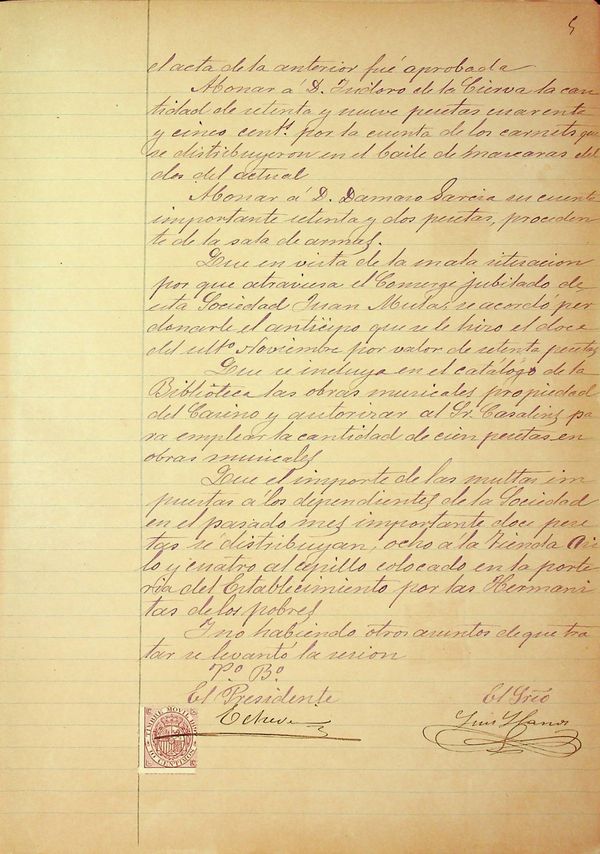 5
el acta de la anterior fué aprobada
Abonar á D. Isidoro de la Cierva la can
tidad de setenta y nueve pesetas cuarenta
y cinco centˢ por la cuenta de los carnets que
se distribuyeron en el baile de mascaras del
dos del actual
Abonar á D. Damaso Garcia su cuenta
importante setenta y dos pesetas, proceden
te de la sala de armas.
Que en vista de la mala situacion
por que atraviesa el Conserge jubilado de
esta Sociedad Juan Mula, se acordó per
donarle el anticipo que se le hizo el doce
del ultº Noviembre por valor de setenta pesetas
Que se incluya en el catálogo de la
Biblioteca las obras musicales propiedad
del Casino y autorizar al Sr. Casalins pa
ra emplear la cantidad de cien pesetas en
obras musicales
Que el importe de las multas im
puestas á los dependientes de la Sociedad
en el pasado mes importante doce pese
tas se distribuyan, ocho a la Tienda Asi
lo y cuatro al cepillo colocado en la porte
ria del Establecimiento por las Hermani
tas de los pobres
Y no habiendo otros asuntos de que tra
tar se levantó la sesion
Vº Bº
El Presidente
El Srio
Luis Llanos
TIMBRE MOVIL
10 CENTIMOS